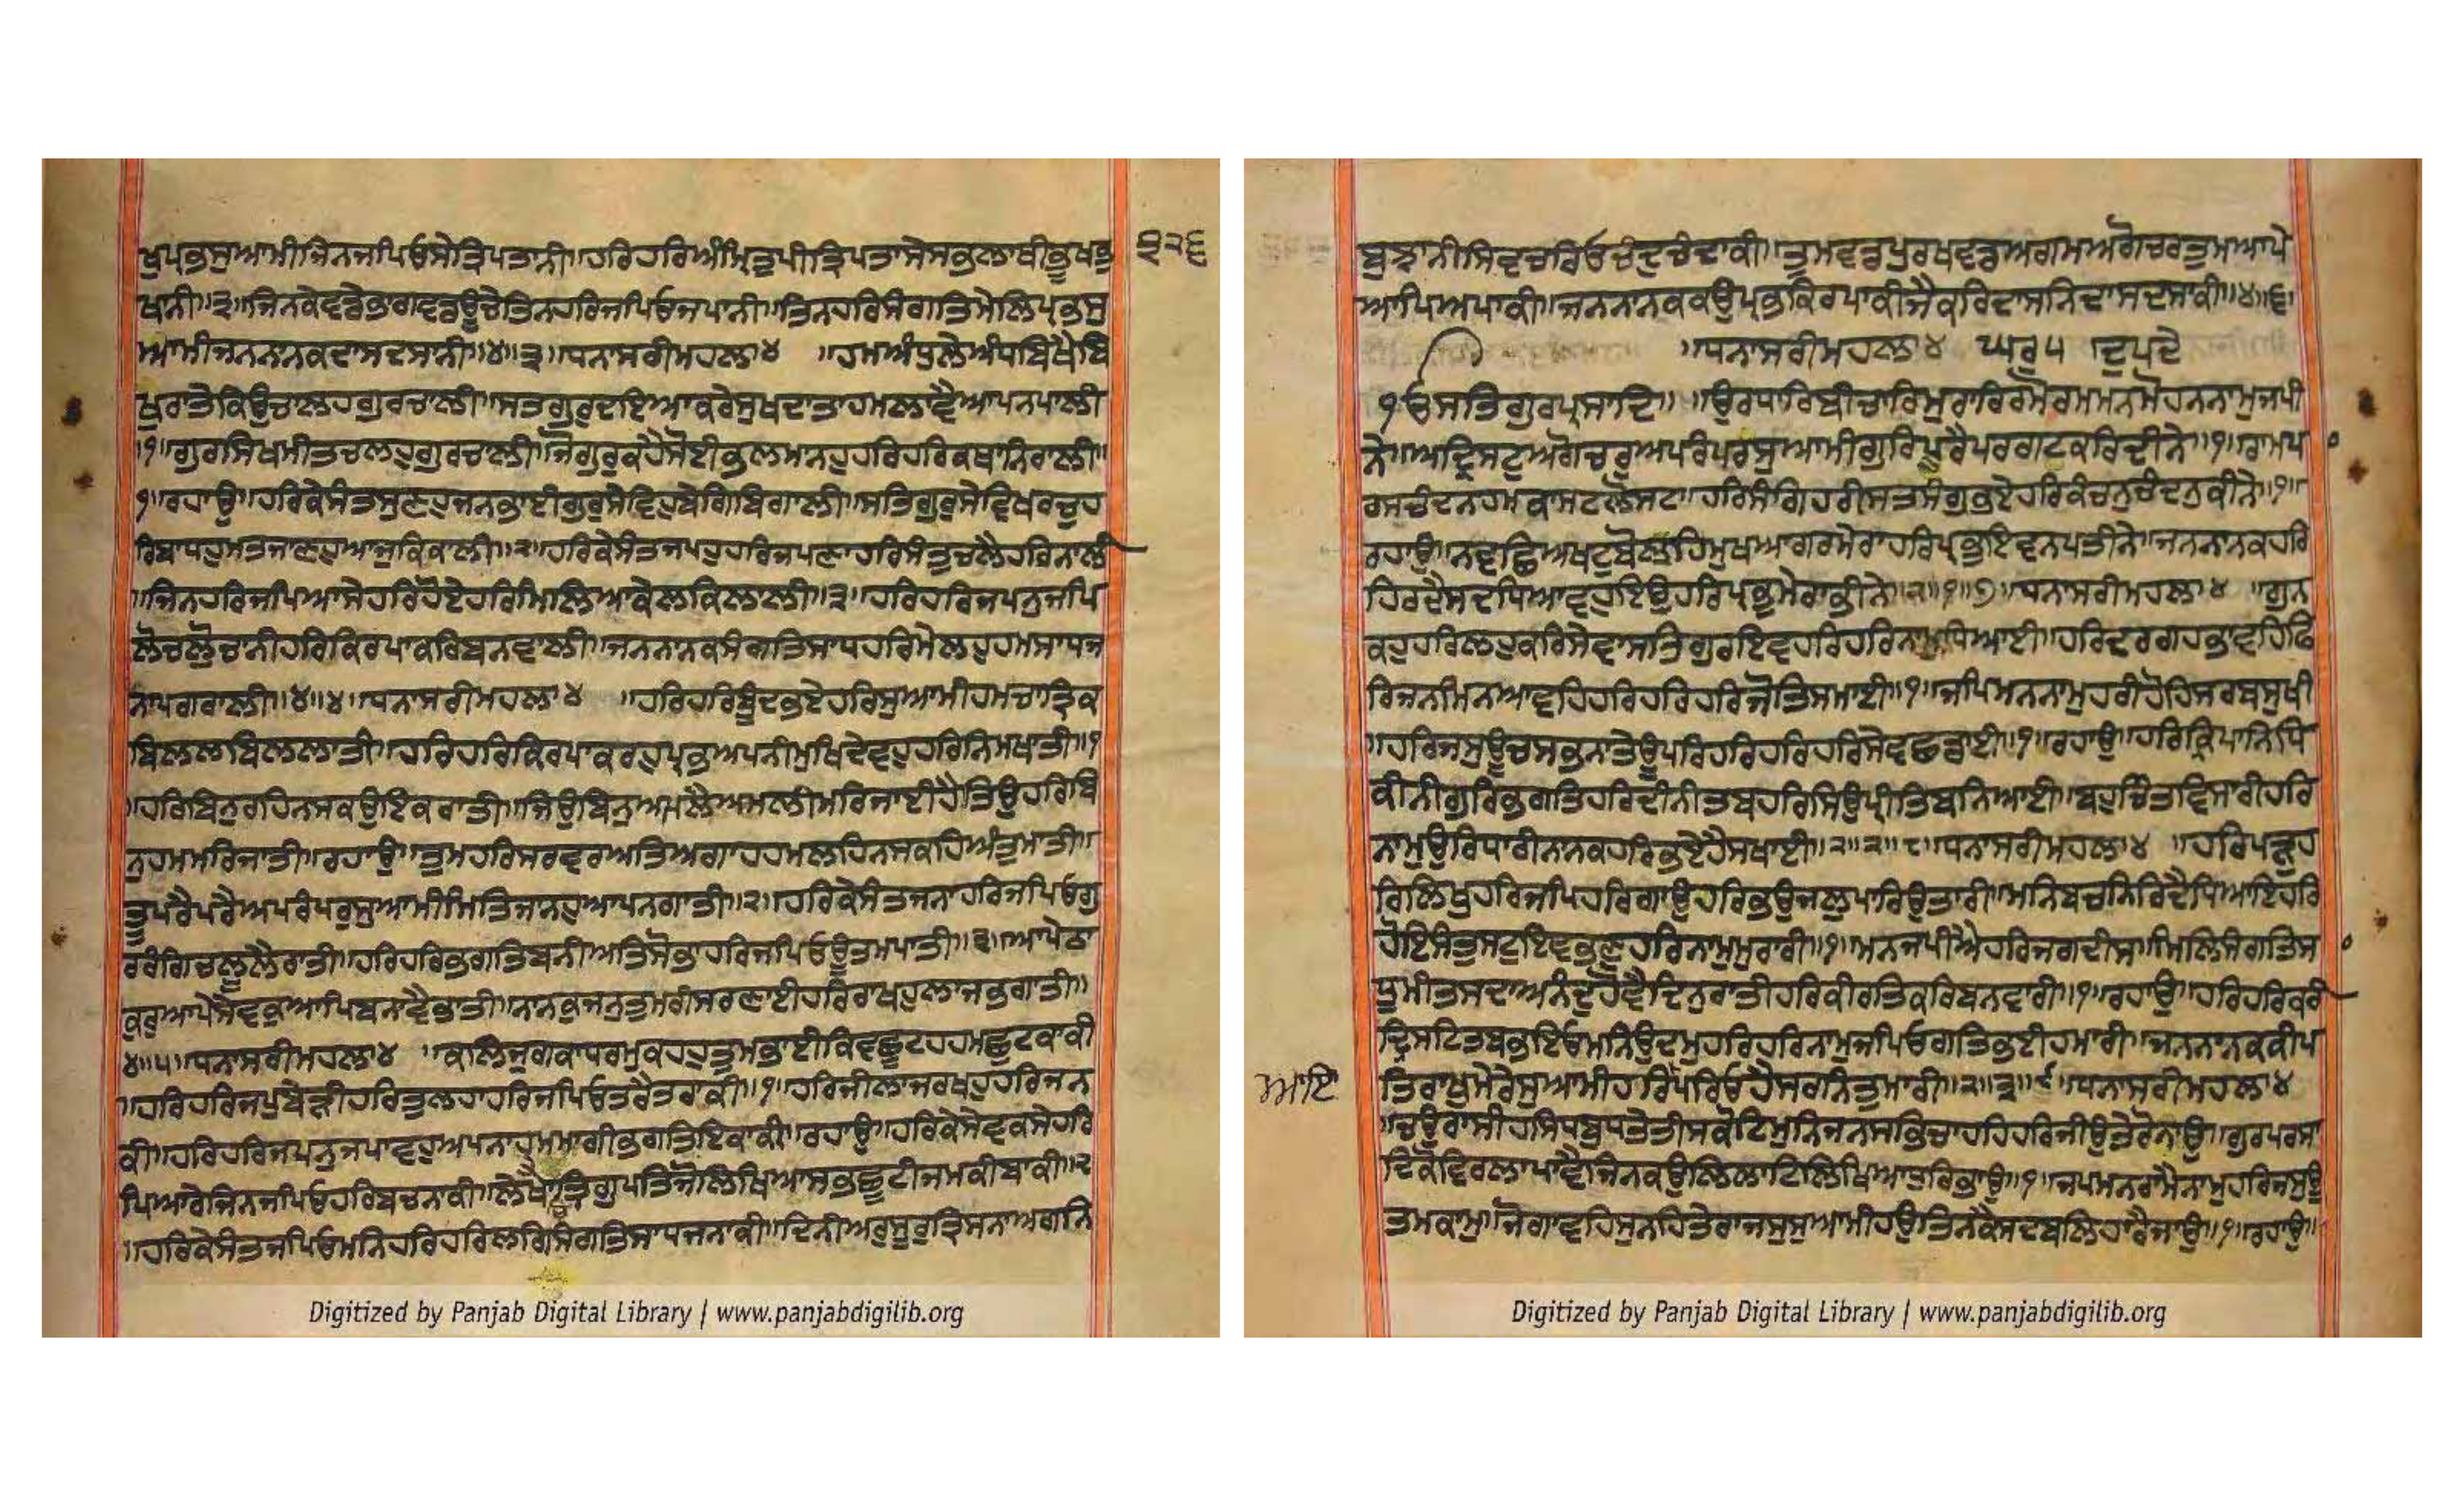 ਖੁਪ੍ਰਭਸੁਆਮੀਜਿਨਜਪਿਓਸੇਤ੍ਰਿਪਤਾਨੀ॥ਹਰਿਹਰਿਅੰਮ੍ਰਿਤੁਪੀਤ੍ਰਿਪਤਾਸੇਸਭਲਾਥੀਭੂਖਭੁ
੩੨੬
ਖਾਨੀ॥੩॥ਜਿਨਕੇਵਡੇਭਾਗਵਡਊਚੇਤਿਨਹਰਿਜਪਿਓਜਪਾਨੀ॥ਤਿਨਹਰਿਸੰਗਤਿਮੇਲਿਪ੍ਰਭਸੁ
ਆਮੀਜਨਨਾਨਕਦਾਸਦਸਾਨੀ॥੪॥੩॥ਧਨਾਸਰੀਮਹਲਾ੪ ॥ਹਮਅੰਧੁਲੇਅੰਧਬਿਖੈਬਿ
ਖੁਰਾਤੇਕਿਉਚਾਲਹਗੁਰਚਾਲੀ॥ਸਤਗੁਰੁਦਇਆਕਰੇਸੁਖਦਾਤਾਹਮਲਾਵੈਆਪਨਪਾਲੀ
॥੧॥ਗੁਰਸਿਖਮੀਤਚਲਹੁਗੁਰਚਾਲੀ॥ਜੋਗੁਰੁਕਹੈਸੋਈਭਲਮਾਨਹੁਹਰਿਹਰਿਕਥਾਨਿਰਾਲੀ॥
੧॥ਰਹਾਉ॥ਹਰਿਕੇਸੰਤਸੁਣਹੁਜਨਭਾਈਗੁਰੁਸੇਵਿਹੁਬੇਗਿਬੇਗਾਲੀ॥ਸਤਿਗੁਰੁਸੇਵਿਖਰਚੁਹ
ਰਿਬਾਧਹੁਮਤਜਾਣਹੁਆਜੁਕਿਕਾਲੀ॥੨॥ਹਰਿਕੇਸੰਤਜਪਹੁਹਰਿਜਪਣਾਹਰਿਸੰਤੁਚਲੈਹਰਿਨਾਲੀ
॥ਜਿਨਹਰਿਜਪਿਆਸੇਹਰਿਹੋਏਹਰਿਮਿਲਿਆਕੇਲਕੇਲਾਲੀ॥੩॥ਹਰਿਹਰਿਜਪਨੁਜਪਿ
ਲੋਚਲੋੁਚਾਨੀਹਰਿਕਿਰਪਾਕਰਿਬਨਵਾਲੀ॥ਜਨਨਾਨਕਸੰਗਤਿਸਾਧਹਰਿਮੇਲਹੁਹਮਸਾਧਜ
ਨਾਪਗਰਾਲੀ॥੪॥੪॥ਧਨਾਸਰੀਮਹਲਾ੪ ॥ਹਰਿਹਰਿਬੂੰਦਭਏਹਰਿਸੁਆਮੀਹਮਚਾਤ੍ਰਿਕ
ਬਿਲਲਬਿਲਲਾਤੀ॥ਹਰਿਹਰਿਕ੍ਰਿਪਾਕਰਹੁਪ੍ਰਭਅਪਨੀਮੁਖਿਦੇਵਹੁਹਰਿਨਿਮਖਾਤੀ॥੧
॥ਹਰਿਬਿਨੁਰਹਿਨਸਕਉਇਕਰਾਤੀ॥ਜਿਉਬਿਨੁਅਮਲੈਅਮਲੀਮਰਿਜਾਈਹੈਤਿਉਹਰਿਬਿ
ਨੁਹਮਮਰਿਜਾਤੀ॥ਰਹਾਉ॥ਤੁਮਹਰਿਸਰਵਰਅਤਿਅਗਾਹਹਮਲਹਿਨਸਕਹਿਅੰਤੁਮਾਤੀ॥
ਤੂਪਰੈਪਰੈਅਪਰੰਪਰੁਸੁਆਮੀਮਿਤਿਜਾਨਹੁਆਪਨਗਾਤੀ॥੨॥ਹਰਿਕੇਸੰਤਜਨਾਹਰਿਜਪਿਓਗੁ
ਰਰੰਗਿਚਲੂਲੈਰਾਤੀ॥ਹਰਿਹਰਿਭਗਤਿਬਨੀਅਤਿਸੋਭਾਹਰਿਜਪਿਓਊਤਮਪਾਤੀ॥੩॥ਆਪੇਠਾ
ਕੁਰੁਆਪੇਸੇਵਕੁਆਪਿਬਨਾਵੈਭਾਤੀ॥ਨਾਨਕੁਜਨੁਤੁਮਰੀਸਰਣਾਈਹਰਿਰਾਖਹੁਲਾਜਭਗਾਤੀ॥
੪॥੫॥ਧਨਾਸਰੀਮਹਲਾ੪ ॥ਕਲਿਜੁਗਕਾਧਰਮੁਕਹਹੁਤੁਮਭਾਈਕਿਵਛੂਟਹਹਮਛੁਟਕਾਕੀ
॥ਹਰਿਹਰਿਜਪੁਬੇੜੀਹਰਿਤੁਲਹਾਹਰਿਜਪਿਓਤਰੈਤਰਾਕੀ॥੧॥ਹਰਿਜੀਲਾਜਰਖਹੁਹਰਿਜਨ
ਕੀ॥ਹਰਿਹਰਿਜਪਨੁਜਪਾਵਹੁਅਪਨਾਹਮਮਾਗੀਭਗਤਿਇਕਾਕੀ॥ਰਹਾਉ॥ਹਰਿਕੇਸੇਵਕਸੇਹਰਿ
ਪਿਆਰੇਜਿਨਜਪਿਓਹਰਿਬਚਨਾਕੀ॥ਲੇਖਾਚਿਤ੍ਰਗੁਪਤਿਜੋਲਿਖਿਆਸਭਛੂਟੀਜਮਕੀਬਾਕੀ॥੨
॥ਹਰਿਕੇਸੰਤਜਪਿਓਮਨਿਹਰਿਹਰਿਲਗਿਸੰਗਤਿਸਾਧਜਨਾਕੀ॥ਦਿਨੀਅਰੁਸੂਰੁਤ੍ਰਿਸਨਾਅਗਨਿ
ਬੁਝਾਨੀਸਿਵਚਰਿਓਚੰਦੁਚੰਦਾਕੀ॥ਤੁਮਵਡਪੁਰਖਵਡਅਗਮਅਗੋਚਰਤੁਮਆਪੇ
ਆਪਿਅਪਾਕੀ॥ਜਨਨਾਨਕਕਉਪ੍ਰਭਕਿਰਪਾਕੀਜੈਕਰਿਦਾਸਨਿਦਾਸਦਸਾਕੀ॥੪॥੬॥
॥ਧਨਾਸਰੀਮਹਲਾ੪ ਘਰੁ੫ ਦੁਪਦੇ
ੴਸਤਿਗੁਰਪ੍ਰਸਾਦਿ॥ ॥ਉਰਧਾਰਿਬੀਚਾਰਿਮੁਰਾਰਿਰਮੋਰਮਮਨਮੋਹਨਨਾਮੁਜਪੀ
ਨੇ॥ਅਦ੍ਰਿਸਟੁਅਗੋਚਰੁਅਪਰੰਪਰਸੁਆਮੀਗੁਰਿਪੂਰੈਪਰਗਟਕਰਿਦੀਨੇ॥੧॥ਰਾਮਪਾ
ਰਸਚੰਦਨਹਮਕਾਸਟਲੋਸਟ॥ਹਰਿਸੰਗਿਹਰੀਸਤਸੰਗੁਭਏਹਰਿਕੰਚਨੁਚੰਦਨੁਕੀਨੇ॥੧॥
ਰਹਾਉ॥ਨਵਛਿਅਖਟੁਬੋਲਹਿਮੁਖਆਗਰਮੇਰਾਹਰਿਪ੍ਰਭੁਇਵਨਪਤੀਨੇ॥ਜਨਨਾਨਕਹਰਿ
ਹਿਰਦੈਸਦਧਿਆਵਹੁਇਉਹਰਿਪ੍ਰਭੁਮੇਰਾਭੀਨੇ॥੨॥੧॥੭॥ਧਨਾਸਰੀਮਹਲਾ੪ ॥ਗੁਨ
ਕਹੁਹਰਿਲਹੁਕਰਿਸੇਵਾਸਤਿਗੁਰਇਵਹਰਿਹਰਿਨਾਮੁਧਿਆਈ॥ਹਰਿਦਰਗਹਭਾਵਹਿਫਿ
ਰਿਜਨਮਿਨਆਵਹਿਹਰਿਹਰਿਹਰਿਜੋਤਿਸਮਾਈ॥੧॥ਜਪਿਮਨਨਾਮੁਹਰੀਹੋਹਿਸਰਬਸੁਖੀ
॥ਹਰਿਜਸੁਊਚਸਭਨਾਤੇਊਪਰਿਹਰਿਹਰਿਹਰਿਸੇਵਛਡਾਈ॥੧॥ਰਹਾਉ॥ਹਰਿਕ੍ਰਿਪਾਨਿਧਿ
ਕੀਨੀਗੁਰਿਭਗਤਿਹਰਿਦੀਨੀਤਬਹਰਿਸਿਉਪ੍ਰੀਤਿਬਨਿਆਈ॥ਬਹੁਚਿੰਤਵਿਸਾਰੀਹਰਿ
ਨਾਮੁਉਰਿਧਾਰੀਨਾਨਕਹਰਿਭਏਹੈਸਖਾਈ॥੨॥੨॥੮॥ਧਨਾਸਰੀਮਹਲਾ੪ ॥ਹਰਿਪੜੁਹ
ਰਿਲਿਖੁਹਰਿਜਪਿਹਰਿਗਾਉਹਰਿਭਉਜਲੁਪਾਰਿਉਤਾਰੀ॥ਮਨਿਬਚਨਿਰਿਦੈਧਿਆਇਹਰਿ
ਹੋਇਸੰਤੁਸਟੁਇਵਭਣੁਹਰਿਨਾਮੁਮੁਰਾਰੀ॥੧॥ਮਨਜਪੀਐਹਰਿਜਗਦੀਸ॥ਮਿਲਿਸੰਗਤਿਸਾ
ਧੂਮੀਤਸਦਾਅਨੰਦੁਹੋਵੈਦਿਨੁਰਾਤੀਹਰਿਕੀਰਤਿਕਰਿਬਨਵਾਰੀ॥੧॥ਰਹਾਉ॥ਹਰਿਹਰਿਕਰੀ
ਦ੍ਰਿਸਟਿਤਬਭਇਓਮਨਿਉਦਮੁਹਰਿਹਰਿਨਾਮੁਜਪਿਓਗਤਿਭਈਹਮਾਰੀ॥ਜਨਨਾਨਕਕੀਪ
ਆਇ
ਤਿਰਾਖੁਮੇਰੇਸੁਆਮੀਹਰਿਪਰਿਓਹੈਸਰਨਿਤੁਮਾਰੀ॥੨॥੩॥੯॥ਧਨਾਸਰੀਮਹਲਾ੪
॥ਚਉਰਾਸੀਹਸਿਧਬੁਧਤੇਤੀਸਕੋਟਿਮੁਨਿਜਨਸਭਿਚਾਹਹਿਹਰਿਜੀਉਤੇਰੋਨਾਉ॥ਗੁਰਪਰਸਾ
ਦਿਕੋਵਿਰਲਾਪਾਵੈਜਿਨਕਉਲਿਲਾਟਿਲਿਖਿਆਧੁਰਿਭਾਉ॥੧॥ਜਪਮਨਰਾਮੈਨਾਮੁਹਰਿਜਸੁਊ
ਤਮਕਾਮ॥ਜੋਗਾਵਹਿਸੁਨਹਿਤੇਰਾਜਸੁਸੁਆਮੀਹਉਤਿਨਕੈਸਦਬਲਿਹਾਰੈਜਾਉ॥੧॥ਰਹਾਉ॥
Digitized by Panjab Digital Library | www.panjabdigilib.org
Digitized by Panjab Digital Library | www.panjabdigilib.org